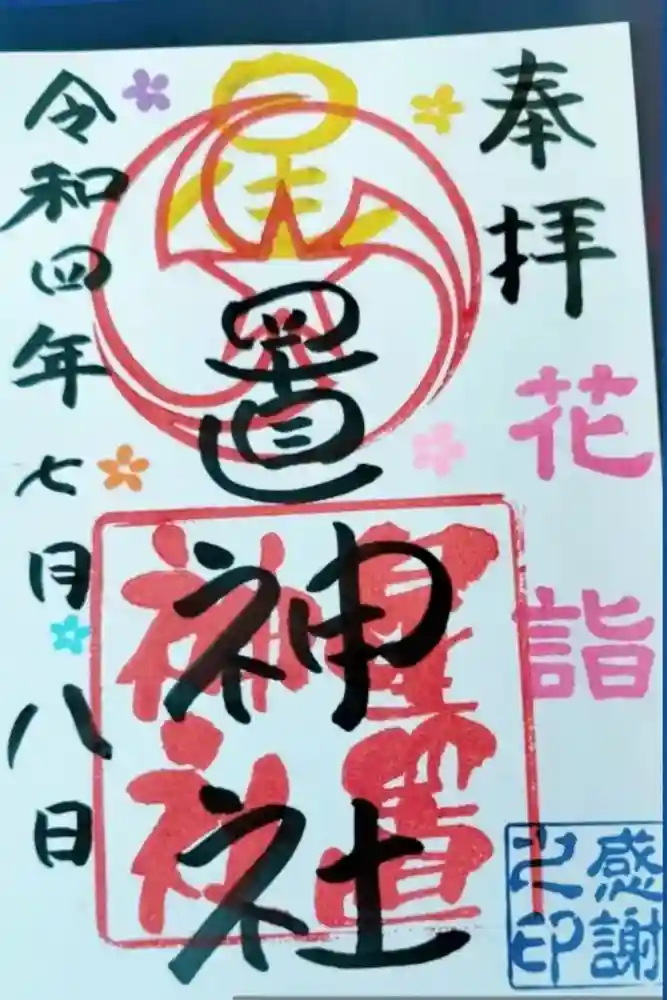 奉拝
花詣
星置神社
星置
神社
令和四年七月八日
感謝
之印